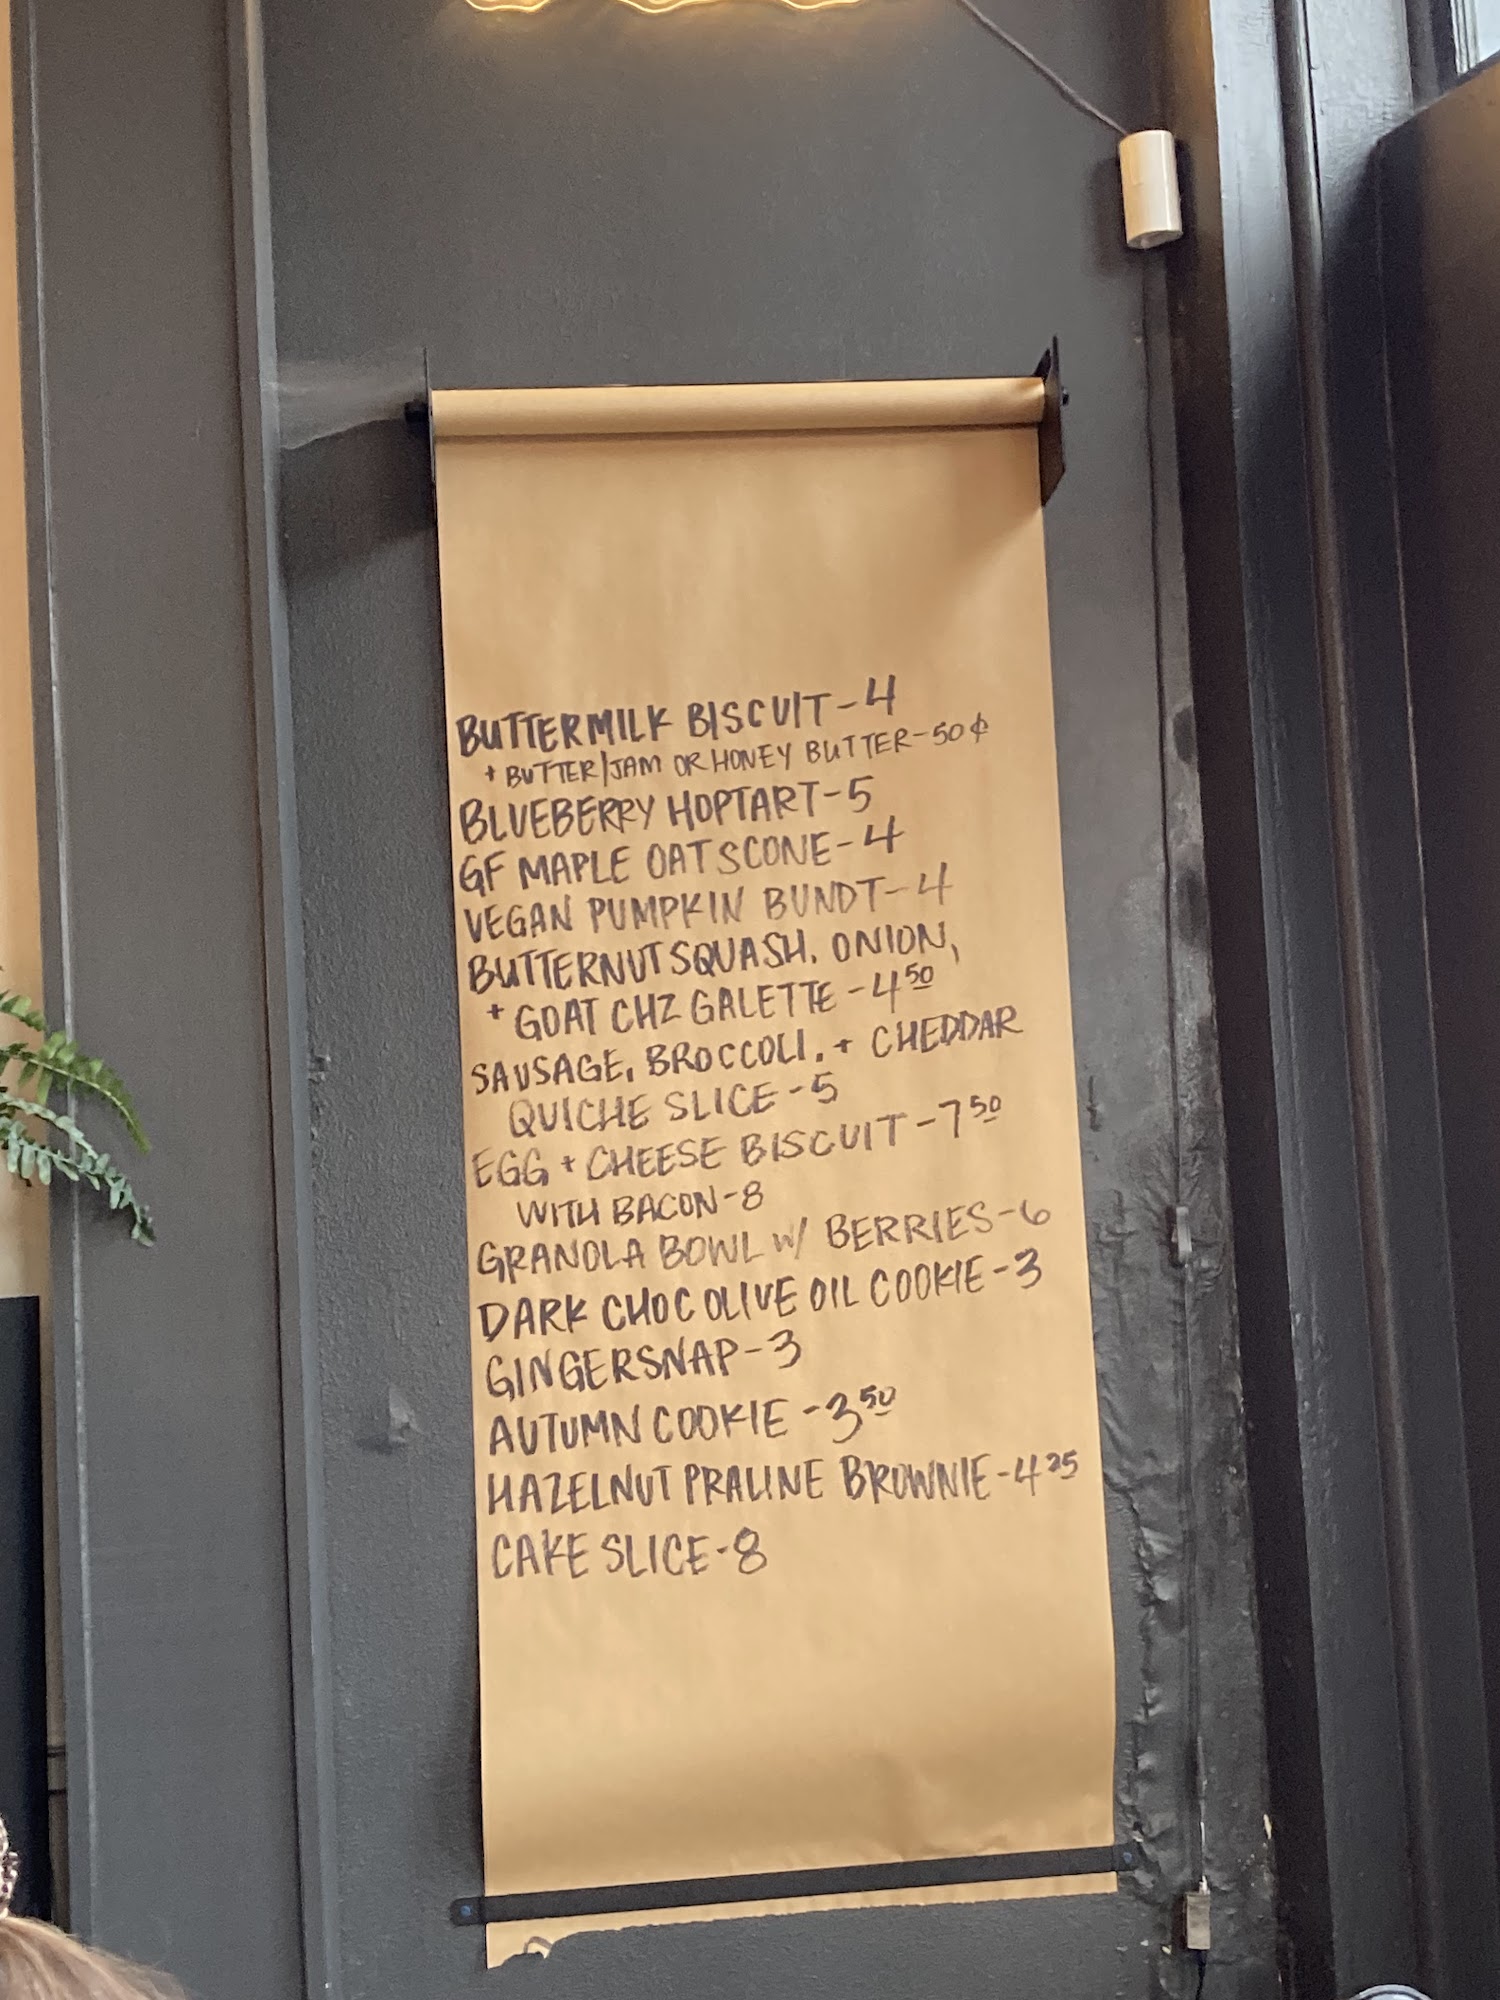 BUTTERMILK BISCUIT-4
+ BUTTER/JAM OR HONEY BUTTER-50¢
BLUEBERRY HOPTART-5
GF MAPLE OAT SCONE-4
VEGAN PUMPKIN BUNDT-4
BUTTERNUT SQUASH, ONION,
+ GOAT CHZ GALETTE-4 50
SAUSAGE, BROCCOLI, + CHEDDAR
QUICHE SLICE-5
EGG + CHEESE BISCUIT-7 50
WITH BACON-8
GRANOLA BOWL w/ BERRIES-6
DARK CHOC OLIVE OIL COOKIE-3
GINGERSNAP-3
AUTUMN COOKIE-3 50
HAZELNUT PRALINE BROWNIE-4 25
CAKE SLICE-8